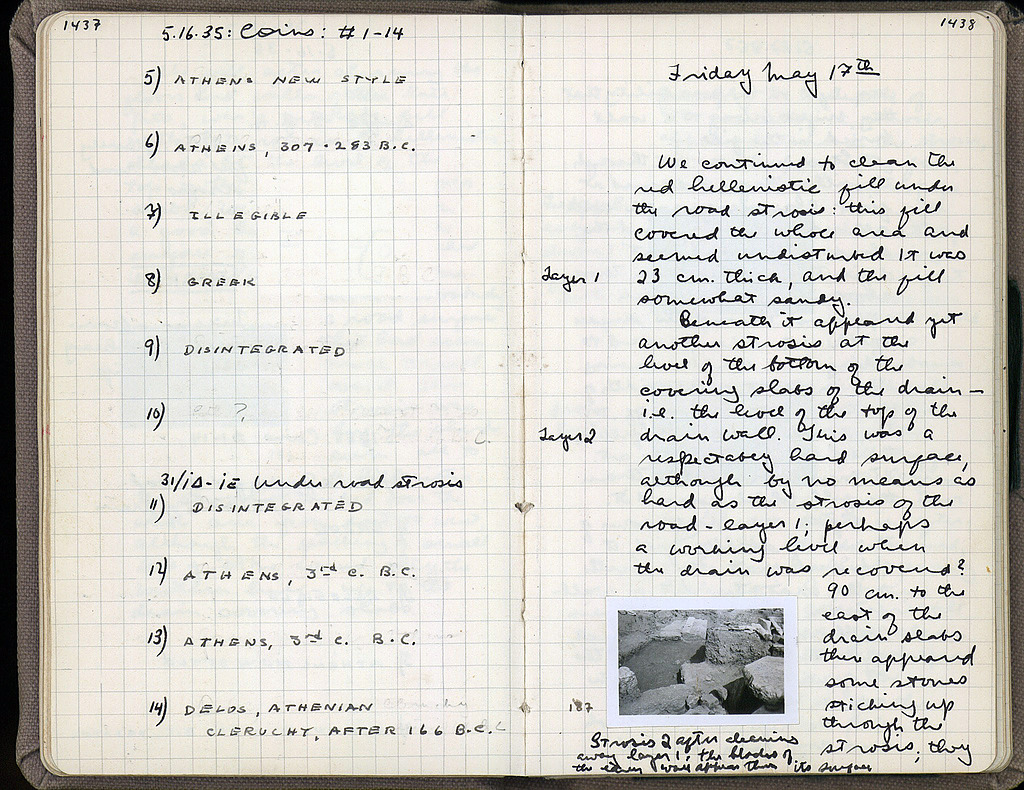 1437
5.16.35: Coins: #1-14
5) ATHENS NEW STYLE
6) ATHENS, 307-283 B.C.
7) ILLEGIBLE
8) GREEK
9) DISINTEGRATED
10) ?
31/ΙΔ-ΙΕ Under road strosis
11) DISINTEGRATED
12) ATHENS, 3rd C. B.C.
13) ATHENS, 3rd C. B.C.
14) DELOS, ATHENIAN
CLERUCHY, AFTER 166 B.C.
1438
Friday May 17th
We continued to clean the
red hellenistic fill under
the road strosis: this fill
covered the whole area and
seemed undisturbed It was
Layer 1 23 cm. thick, and the fill
somewhat sandy.
Beneath it appeared yet
another strosis at the
level of the bottom of the
covering slabs of the drain—
i.e. the level of the top of the
Layer 2 drain wall. This was a
respectably hard surface,
although by no means as
hard as the strosis of the
road-layer 1; perhaps
a working level when
the drain was recovered?
90 cm. to the
east of the
drain slabs
there appeared
some stones
sticking up
through the
strosis; they
187
Strosis 2 after cleaning
away layer 1; the blocks of
the wall appear thru its surface